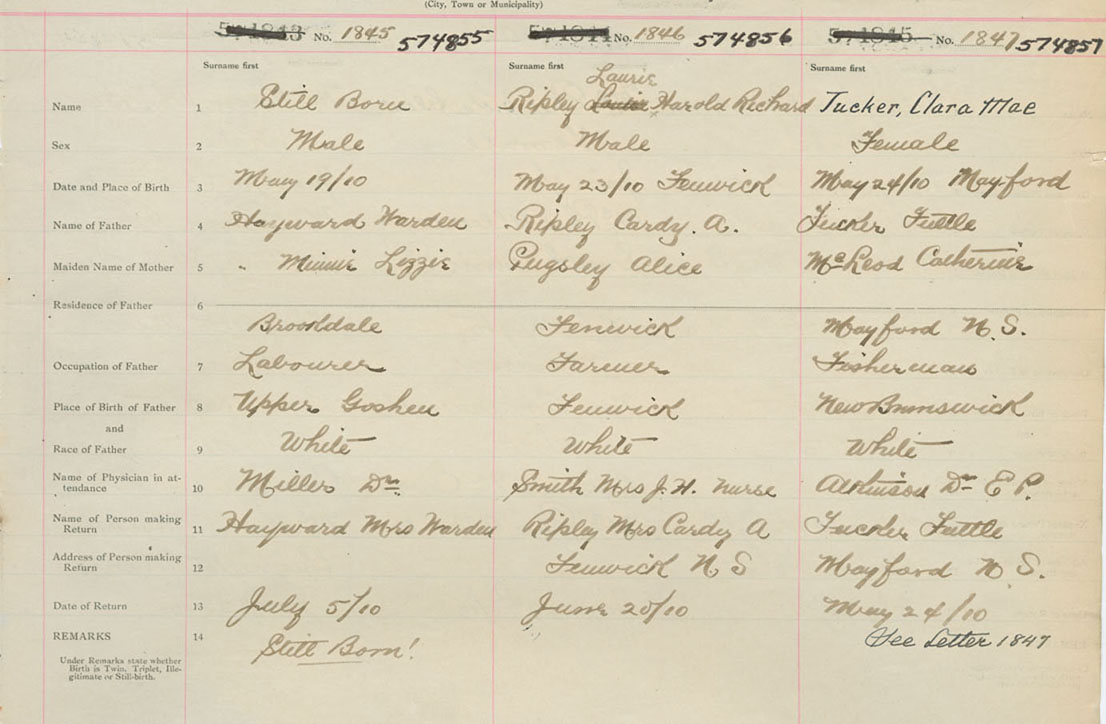 (City, Town or Municipality)
No. 1845 574855 No. 1846 574856 No. 1847 574857
Surname first Surname first Surname first
Laurie
Name 1 Still Born Ripley Harold Richard Tucker, Clara Mae
Sex 2 Male Male Female
Date and Place of Birth 3 May 19/10 May 23/10 Fenwick May 24/10 Mayford
Name of Father 4 Hayward Warden Ripley Cardy. A. Tucker Tuttle
Maiden Name of Mother 5 " Minnie Lizzie Pugsley Alice McLeod Catherine
Residence of Father 6
Brookdale Fenwick Mayford N.S.
Occupation of Father 7 Labourer Farmer Fisherman
Place of Birth of Father 8 Upper Goshen Fenwick New Brunswick
and
Race of Father 9 White White White
Name of Physician in at-
tendance 10 Miller Dr. Smith Mrs J. H. Nurse Atkinson Dr E P.
Name of Person making
Return 11 Hayward Mrs Warden Ripley Mrs Cardy A Tucker Tuttle
Address of Person making
Return 12 Fenwick N S Mayford N S.
Date of Return 13 July 5/10 June 20/10 May 24/10
REMARKS 14 Still Born! See Letter 1847
Under Remarks state whether
Birth is Twin, Triplet, Ille-
gitimate or Still-birth.